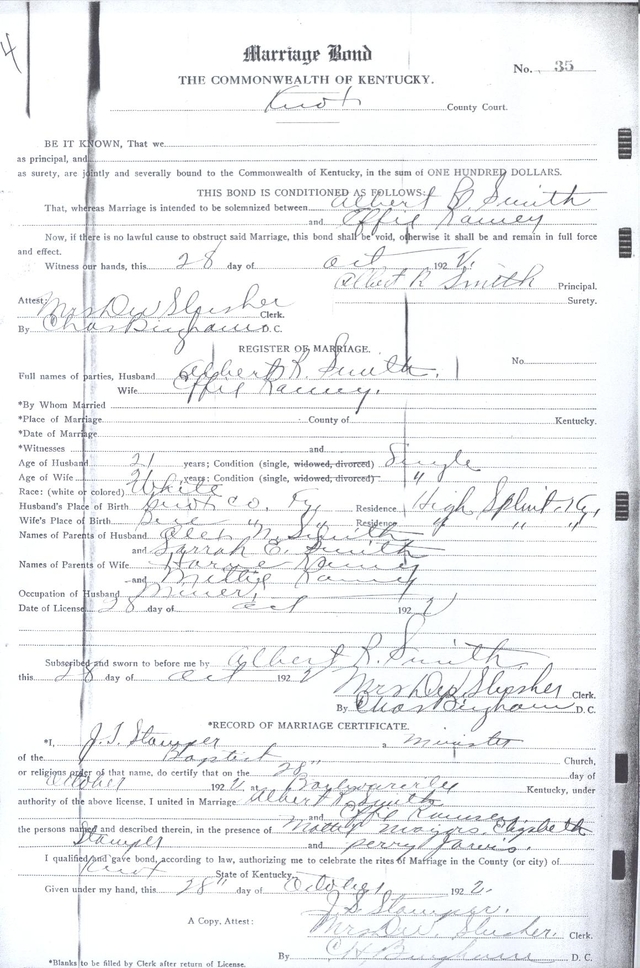 4
Marriage Bond
No. 35
THE COMMONWEALTH OF KENTUCKY.
Knox County Court.
BE IT KNOWN, That we
as principal, and
as surety, are jointly and severally bound to the Commonwealth of Kentucky, in the sum of ONE HUNDRED DOLLARS.
THIS BOND IS CONDITIONED AS FOLLOWS:
That, whereas Marriage is intended to be solemnized between Albert R. Smith
and Effie Ramey
Now, if there is no lawful cause to obstruct said Marriage, this bond shall be void, otherwise it shall be and remain in full force
and effect.
Witness our hands, this 28 day of Oct 1922.
Albert R Smith Principal.
Surety.
Attest:
Mrs Dew Slusher Clerk.
By Chas Bingham D.C.
REGISTER OF MARRIAGE.
No.
Full names of parties, Husband Albert R. Smith.
Wife Effie Ramey.
*By Whom Married
*Place of Marriage County of Kentucky.
*Date of Marriage
*Witnesses and
Age of Husband 21 years; Condition (single, widowed, divorced) Single
Age of Wife years; Condition (single, widowed, divorced) "
Race: (white or colored) White
Husband's Place of Birth Knox Co. Ky Residence High Splint, Ky,
Wife's Place of Birth " " Residence " " "
Names of Parents of Husband Smith
and Sarrah E. Smith
Names of Parents of Wife Ramey
and Millie Ramey
Occupation of Husband Miner
Date of License 28 day of Oct 1922
Subscribed and sworn to before me by Albert R. Smith
this 28 day of Oct 1922
Mrs Dew Slusher Clerk.
By Chas Bingham D. C.
*RECORD OF MARRIAGE CERTIFICATE.
*I, J. T. Stamper a minister
of the Baptist Church,
or religious order of that name, do certify that on the 28" day of
October 1922 at Kentucky, under
authority of the above license, I united in Marriage Albert Smith
and Effie
the persons named and described therein, in the presence of
Stamper and Perry Jarvis.
I qualified and gave bond, according to law, authorizing me to celebrate the rites of Marriage in the County (or city) of
Knox State of Kentucky.
Given under my hand, this 28" day of October 1922.
J. S. Stamper.
A Copy, Attest: Mrs Dew. Slusher Clerk.
By C. H. Bingham D. C.
*Blanks to be filled by Clerk after return of License.